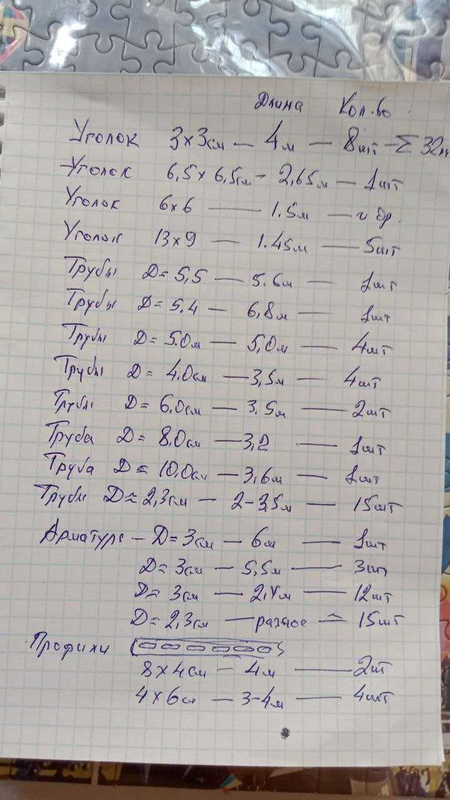 Длина Кол.во
Уголок 3х3см — 4м — 8шт — Σ 32м
Уголок 6,5х6,5см - 2,65м — 1шт
Уголок 6х6 — 1.5м —
Уголок 13х9 — 1.45м — 5шт
Трубы D=5,5 — 5.6м — 1шт
Трубы D=5.4 — 6,8м — 1шт
Трубы D=5.0м — 5,0м — 4шт
Трубы D=4.0см — 3,5м — 4шт
Трубы D=6.0см — 3.5м — 2шт
Труба D=8.0см — 3,2 — 1шт
Труба D=10.0см — 3,6м — 1шт
Трубы D≈2,3см — 2-3,5м — 15шт
Арматура — D=3см — 6м — 1шт
D=3см — 5,5м — 3шт
D=3см — 2,4м — 12шт
D=2,3см — разное — 15шт
Профили
8х4см — 4м — 2шт
4х6см — 3-4м — 4шт